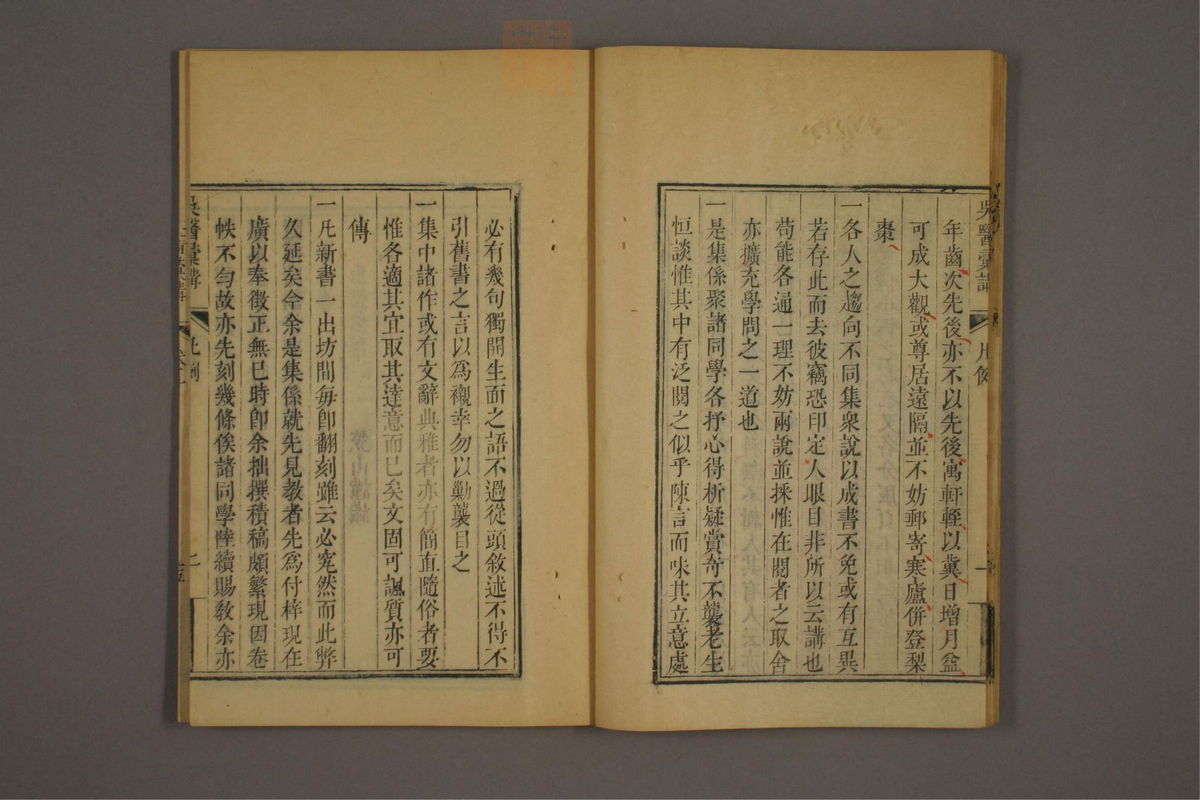 年齒次先後亦不以先後寓軒輊以冀日增月益
可成大觀或尊居遠隔並不妨郵寄寒廬併登梨
棗
一各人之趨向不同集衆說以成書不免或有互異
若存此而去彼竊恐印定人眼目非所以云講也
苟能各通一理不妨兩說並採惟在閱者之取舍
亦擴充學問之一道也
一是集係聚諸同學各抒心得析疑賞奇不襲老生
恒談惟其中有泛閱之似乎陳言而味其立意處
必有幾句獨開生面之語不過從頭敘述不得不
引舊書之言以爲襯幸勿以勦襲目之
一集中諸作或有文辭典雅者亦有簡直隨俗者要
惟各適其宜取其達意而已矣文固可諷質亦可
傳
一凡新書一出坊間每卽翻刻雖云必究然而此弊
久延矣今余是集係就先見教者先爲付梓現在
廣以奉徵正無已時卽余拙撰積稿頗繁現因卷
帙不勻故亦先刻幾條俟諸同學陸續賜敎余亦
吳醫彙講
凡例
二